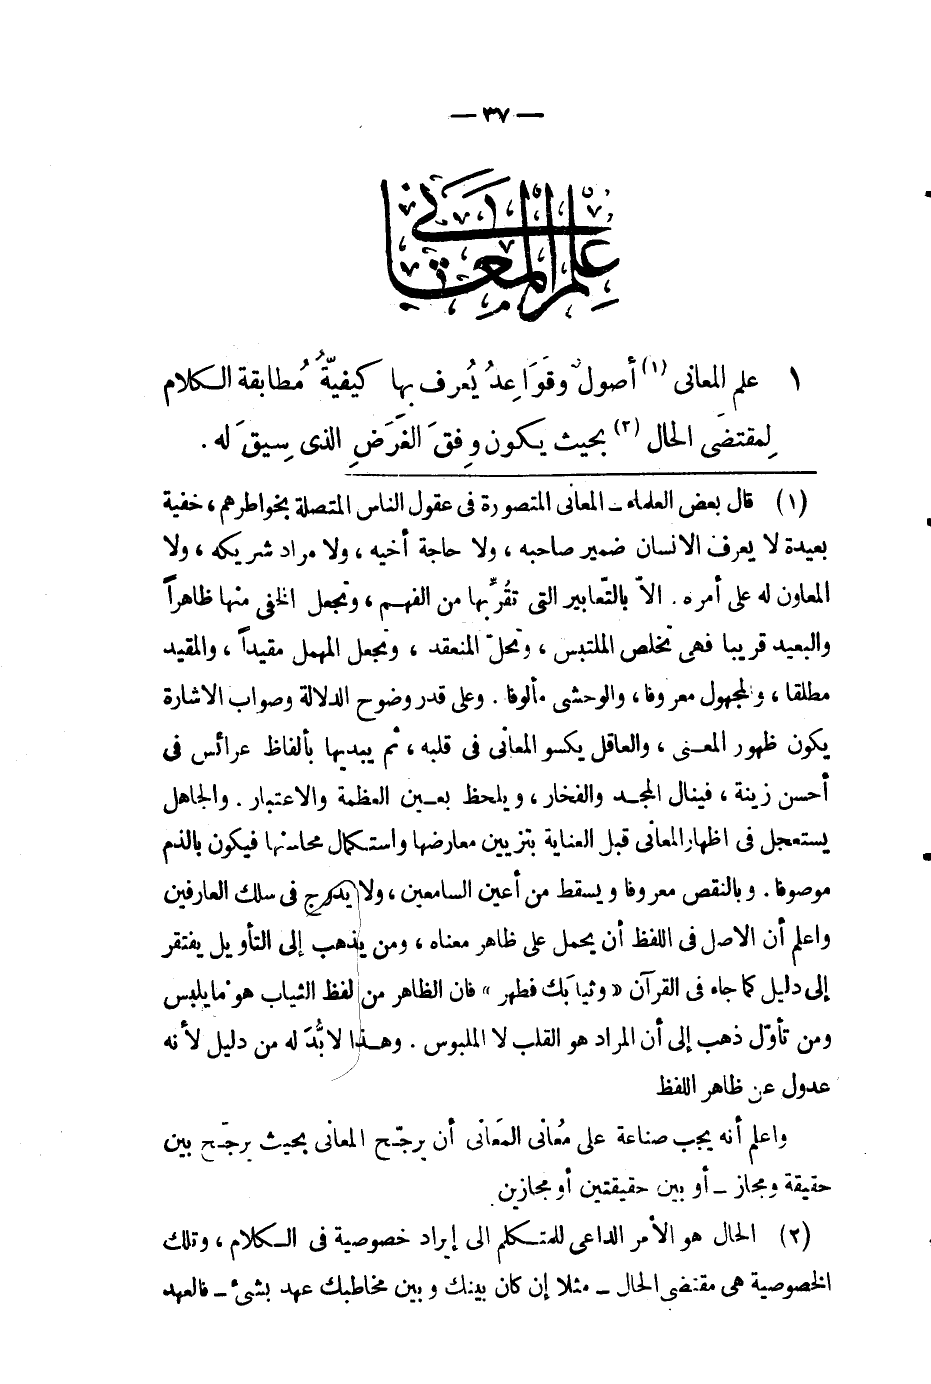 — ٣٧ —
علم المعاني
١ علم المعانى (١) أصولٌ وقوَاعِدُ يُعرف بها كيفيّةُ مُطابقة الكلام
لِمقتضَى الحال (٢) بحيث يكون وِفقَ الغَرَضِ الذى سِيقَ له .
(١) قال بعض العلماء ـ المعانى المتصورة فى عقول الناس المتصلة بخواطرهم ، خفية
بعيدة لا يعرف الانسان ضمير صاحبه ، ولا حاجة أخيه ، ولا مراد شريكه ، ولا
المعاون له على أمره . الاّ بالتّعابير التى تقُرِّبها من الفهم ، وتجعل الخفى منها ظاهراً
والبعيد قريبا فهى تخلص الملتبس ، وتحلّ المنعقد ، وتجعل المهمل مقيداً ، والمقيد
مطلقا ، والمجهول معروفا ، والوحشى مألوفا . وعلى قدر وضوح الدلالة وصواب الاشارة
يكون ظهور المعنى ، والعاقل يكسو المعانى فى قلبه ، ثم يبديها بألفاظ عرائس فى
أحسن زينة ، فينال المجد والفخار ، ويلحظ بعين العظمة والاعتبار . والجاهل
يستعجل فى اظهار المعانى قبل العناية بتزيين معارضها واستكمال محاسنها فيكون بالذم
موصوفا . وبالنقص معروفا ويسقط من أعين السامعين ، ولا يدرج فى سلك العارفين
واعلم أن الاصل فى اللفظ أن يحمل على ظاهر معناه ، ومن يذهب إلى التأويل يفتقر
إلى دليل كما جاء فى القرآن « وثيابَك فطهر » فان الظاهر من لفظ الثياب هو ما يلبس
ومن تأوّل ذهب إلى أن المراد هو القلب لا الملبوس . وهذا لا بُدّ له من دليل لأنه
عدول عن ظاهر اللفظ
واعلم أنه يجب صناعة على مُعانى المَعانى أن يرجّح المعانى بحيث يرجّح بين
حقيقة ومجاز ـ أو بين حقيقتين أو مجازين
(٢) الحال هو الأمر الداعى للمتكلم الى إيراد خصوصية فى الكلام ، وتلك
الخصوصية هى مقتضى الحال ـ مثلا إن كان بينك وبين مخاطبك عهد بشىء ـ فالعهد